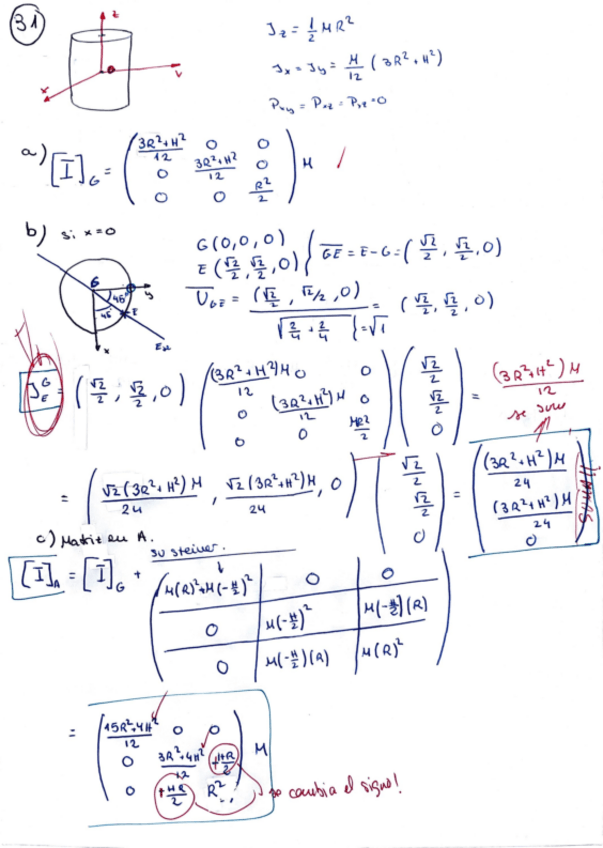 31
z
y
x
J_z = 1/2 MR²
J_x = J_y = M/12 (3R² + H²)
P_xy = P_xz = P_yz = 0
a) [I]_G = ( (3R²+H²)/12 0 0
0 (3R²+H²)/12 0
0 0 R²/2 ) M
b) si x=0
G(0,0,0)
E(√2/2, √2/2, 0) } GE = E-G = (√2/2, √2/2, 0)
U_GE = (√2/2, √2/2, 0) / √(2/4 + 2/4) = (√2/2, √2/2, 0)
} = √1
G
45°
45
E
y
x
J_E^G = (√2/2, √2/2, 0) ( (3R²+H²)M/12 0 0
0 (3R²+H²)M/12 0
0 0 MR²/2 ) ( √2/2
√2/2
0 ) = (3R²+H²)M/12
= ( √2(3R²+H²)M/24 , √2(3R²+H²)M/24 , 0 ) ( √2/2
√2/2
0 ) = ( (3R²+H²)M/24
(3R²+H²)M/24
0 )
c) Matriz en A.
su steiner.
[I]_A = [I]_G + ( M(R)²+M(-H/2)² 0 0
0 M(-H/2)² M(-H/2)(R)
0 M(-H/2)(R) M(R)² )
= ( (15R²+4H²)/12 0 0
0 (3R²+4H²)/12 +HR/2
0 +HR/2 R² ) M
se cambia el signo!